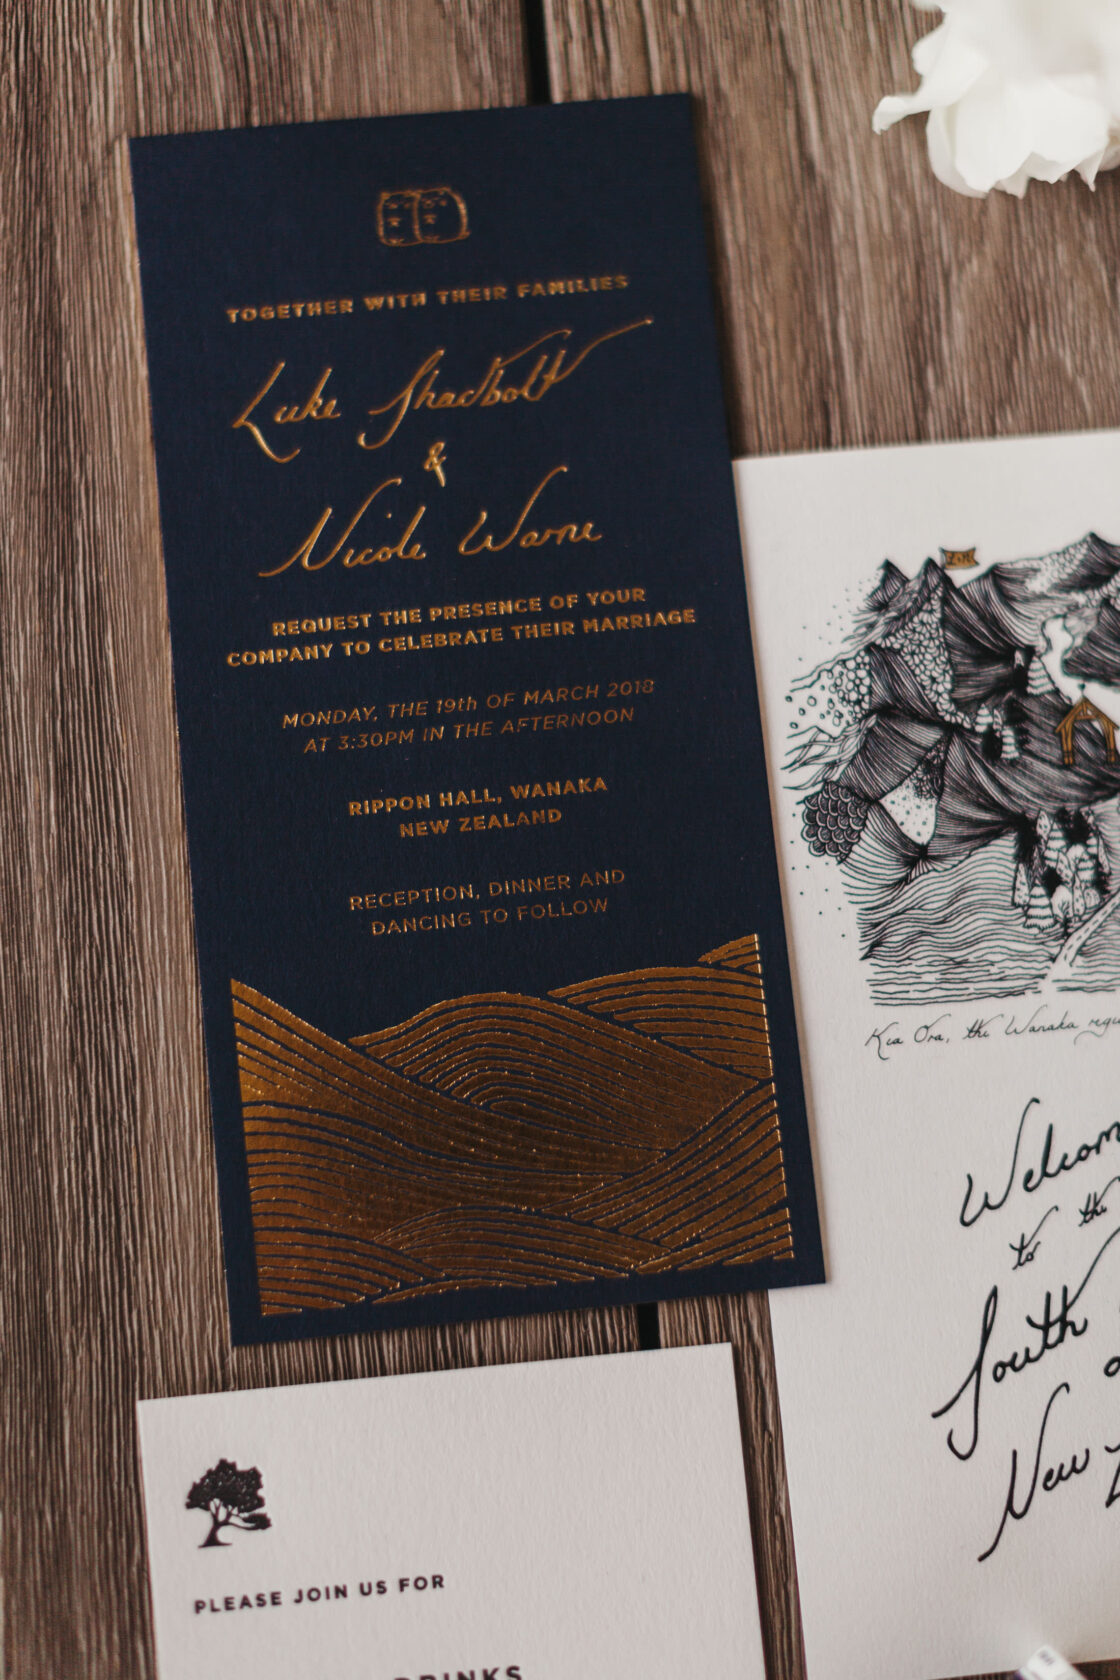 TOGETHER WITH THEIR FAMILIES
Luke Shadbolt
&
Nicole Warne
REQUEST THE PRESENCE OF YOUR
COMPANY TO CELEBRATE THEIR MARRIAGE
MONDAY, THE 19th OF MARCH 2018
AT 3:30PM IN THE AFTERNOON
RIPPON HALL, WANAKA
NEW ZEALAND
RECEPTION, DINNER AND
DANCING TO FOLLOW
Kia Ora, the Wanaka
Welcom
to the
South
New
PLEASE JOIN US FOR
DRINKS